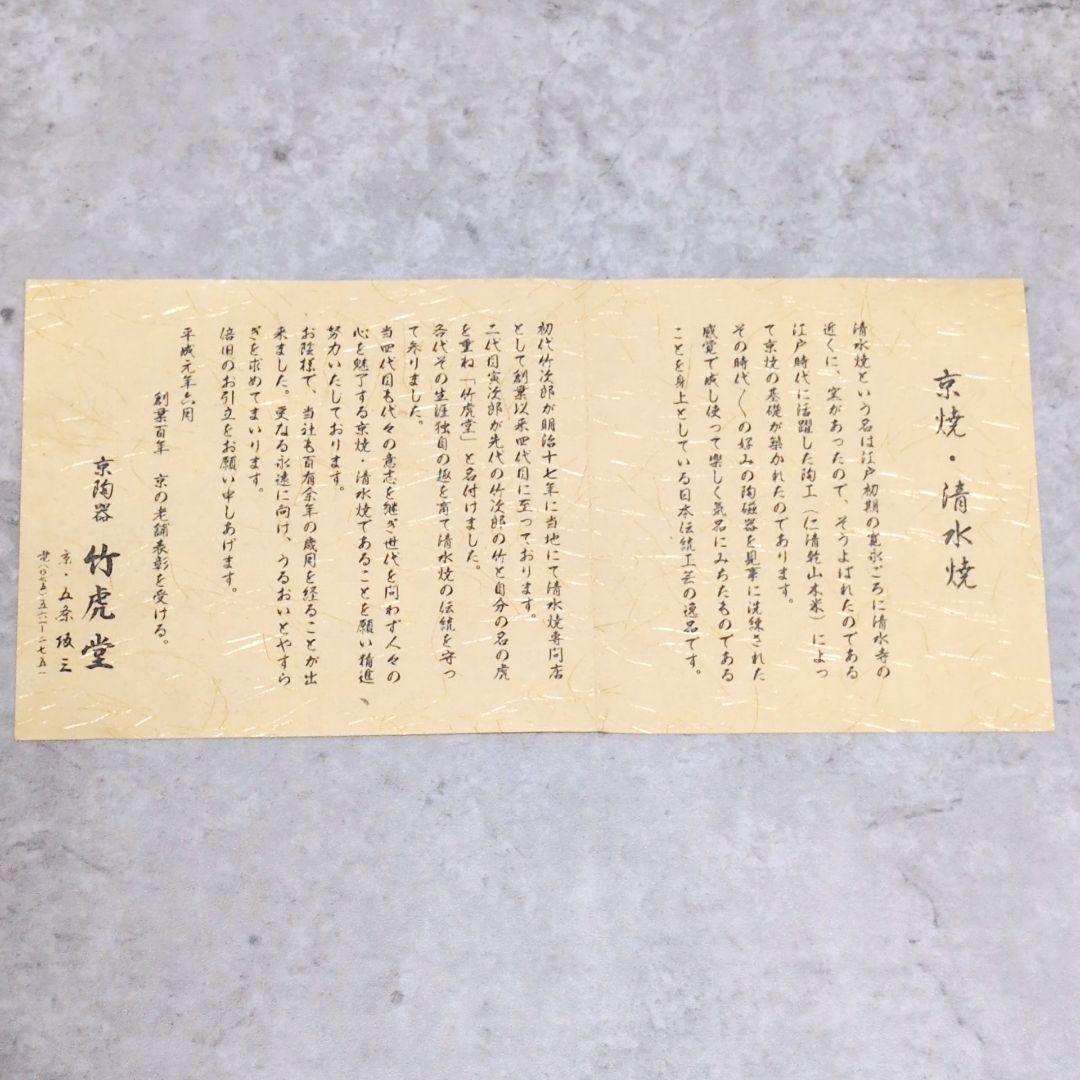 京焼・清水焼
清水焼という名は江戸初期の寛永ごろに清水寺の
近くに、窯があったので、そうよばれたのである
江戸時代に活躍した陶工（仁清乾山木米）によっ
て京焼の基礎が築かれたのであります。
その時代〱の好みの陶磁器を見事に洗練された
感覚で成し使って楽しく気品にみちたものである
ことを身上としている日本伝統工芸の逸品です。
初代竹次郎が明治十七年に当地にて清水焼専門店
として創業以来四代目に至っております。
二代目寅次郎が先代の竹次郎の竹と自分の名の虎
を重ね「竹虎堂」と名付けました。
各代その生涯独自の趣を育て清水焼の伝統を守っ
て参りました。
当四代目も代々の意志を継ぎ世代を問わず人々の
心を魅了する京焼・清水焼であることを願い精進、
努力いたしております。
お陰様で、当社も百有余年の歳月を経ることが出
来ました。更なる永遠に向け、うるおいとやすら
ぎを求めてまいります。
倍旧のお引立をお願い申しあげます。
平成元年六月
創業百年　京の老舗表彰を受ける。
京陶器　竹虎堂
京・五条坂三
電（〇七五）五六一ー二七五一